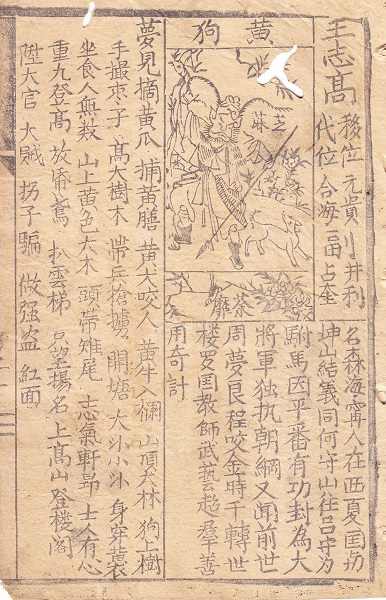 王志高
移位 元貴 井利
代位 合海 占奎
黃狗
芝蔴
荼蘼
名森海 人在西夏国
坤山結義同何守山往呂守为
駙馬因平番有功封為大
將軍独执朝綱又闻前世
周夢良程咬金時千轉世
楼罗国教師武藝超羣善
用奇計
夢見摘黃瓜 捕黃膳 黃犬咬人 黃牛入欄 山頂大林 狗上樹
手撮枣子 高大樹木 帶兵搶擄 開塘 大斗小斗 身穿
坐食人無救 山上黃色大木 頭带雉尾 志氣軒昂 士人有心
重九登高 放 鳶 扒雲梯 只望揚名 上高山登楼阁
陞大官 大賊 拐子騙 做强盗 紅面